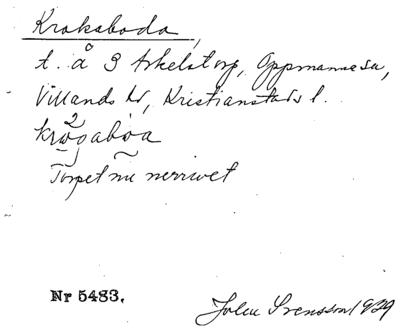 Kroksboda,
t. å 3 Arkelstorp, Oppmanna sn,
Villands hd, Kristianstads l.
Torpet nu nerrivet
Nr 5483.
John Svensson 1929